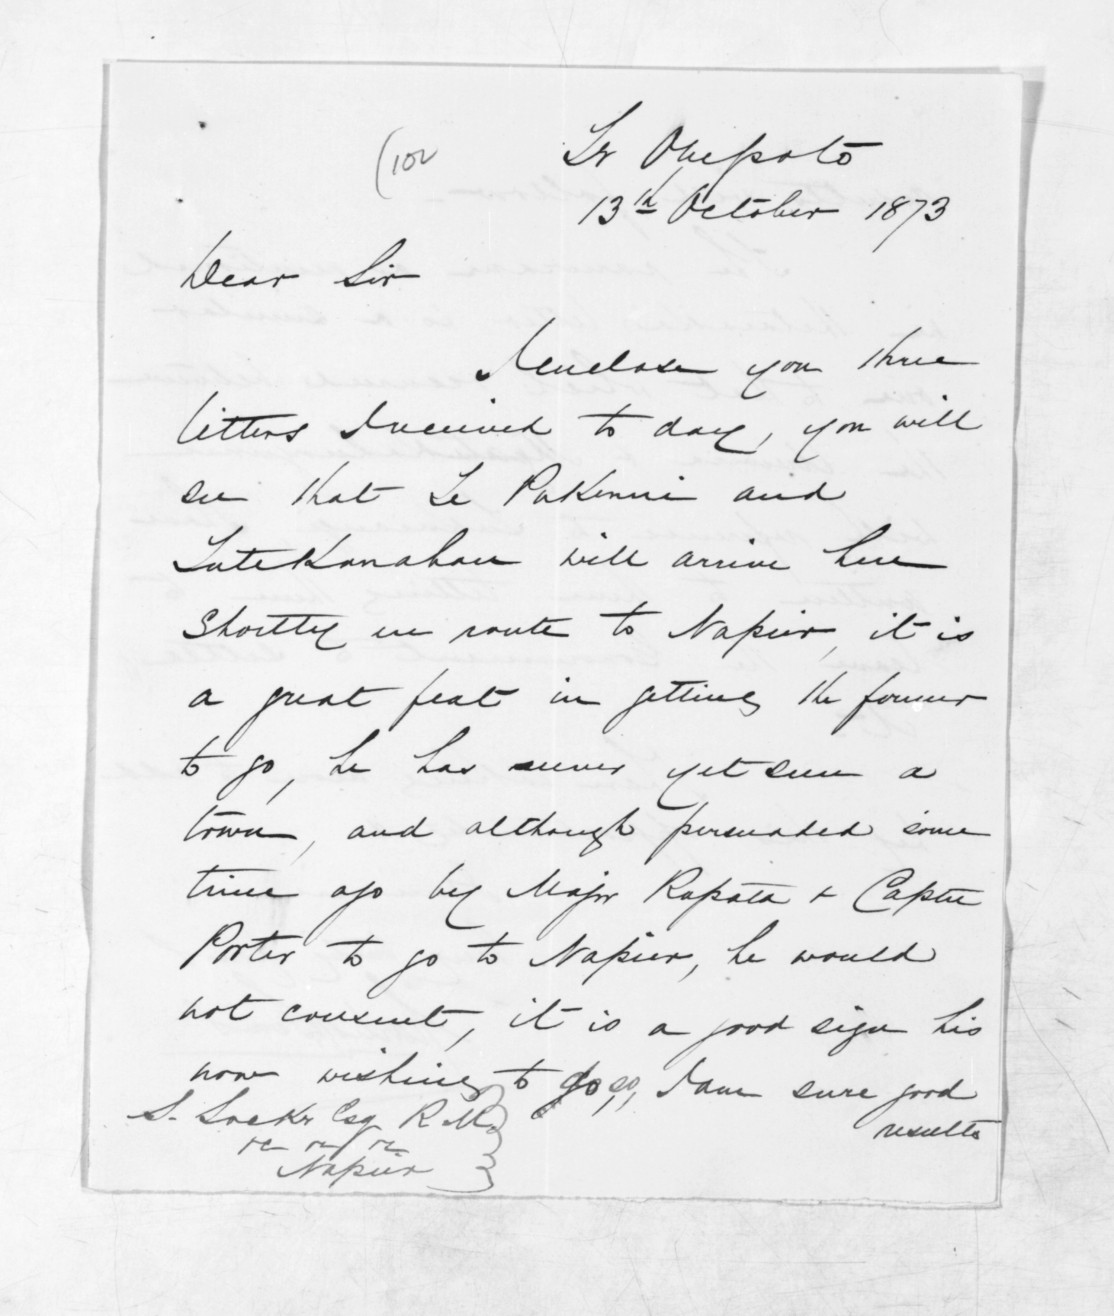 (102
Te Onepoto
13th October 1873
Dear Sir
I enclose you three
letters I received to day, you will
see that Te Pukenui and
Tutekanahau will arrive here
shortly en route to Napier, it is
a great feat in getting the former
to go, he has never yet seen a
town, and although persuaded some
time ago by Major Ropata & Captn
Porter to go to Napier, he would
not consent, it is a good sign his
now wishing to do so, I am sure good
results
S. Locke Esq R.M.
&c &c &c
Napier